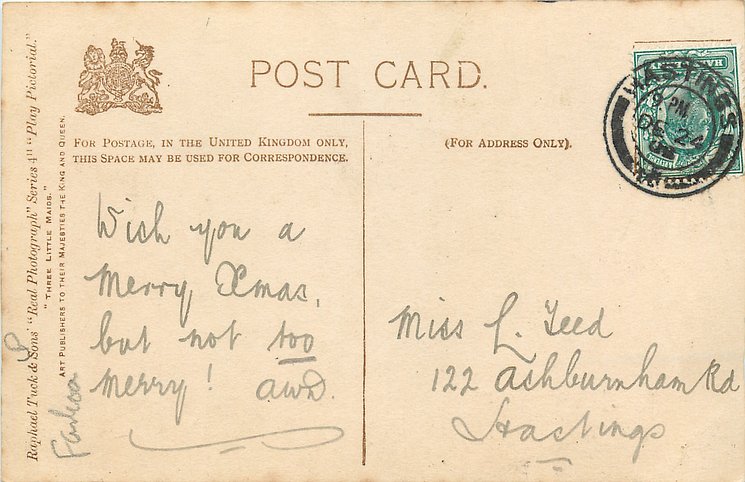 POST CARD.
FOR POSTAGE, IN THE UNITED KINGDOM ONLY,
THIS SPACE MAY BE USED FOR CORRESPONDENCE.
(FOR ADDRESS ONLY).
HASTINGS
9 PM
DE 24
Raphael Tuck & Sons' "Real Photograph" Series 4411 "Play Pictorial."
"THREE LITTLE MAIDS."
ART PUBLISHERS TO THEIR MAJESTIES THE KING AND QUEEN.
Wish you a
Merry Xmas,
but not too
merry!
Miss L. Teed
122 Ashburnham Rd
Hastings